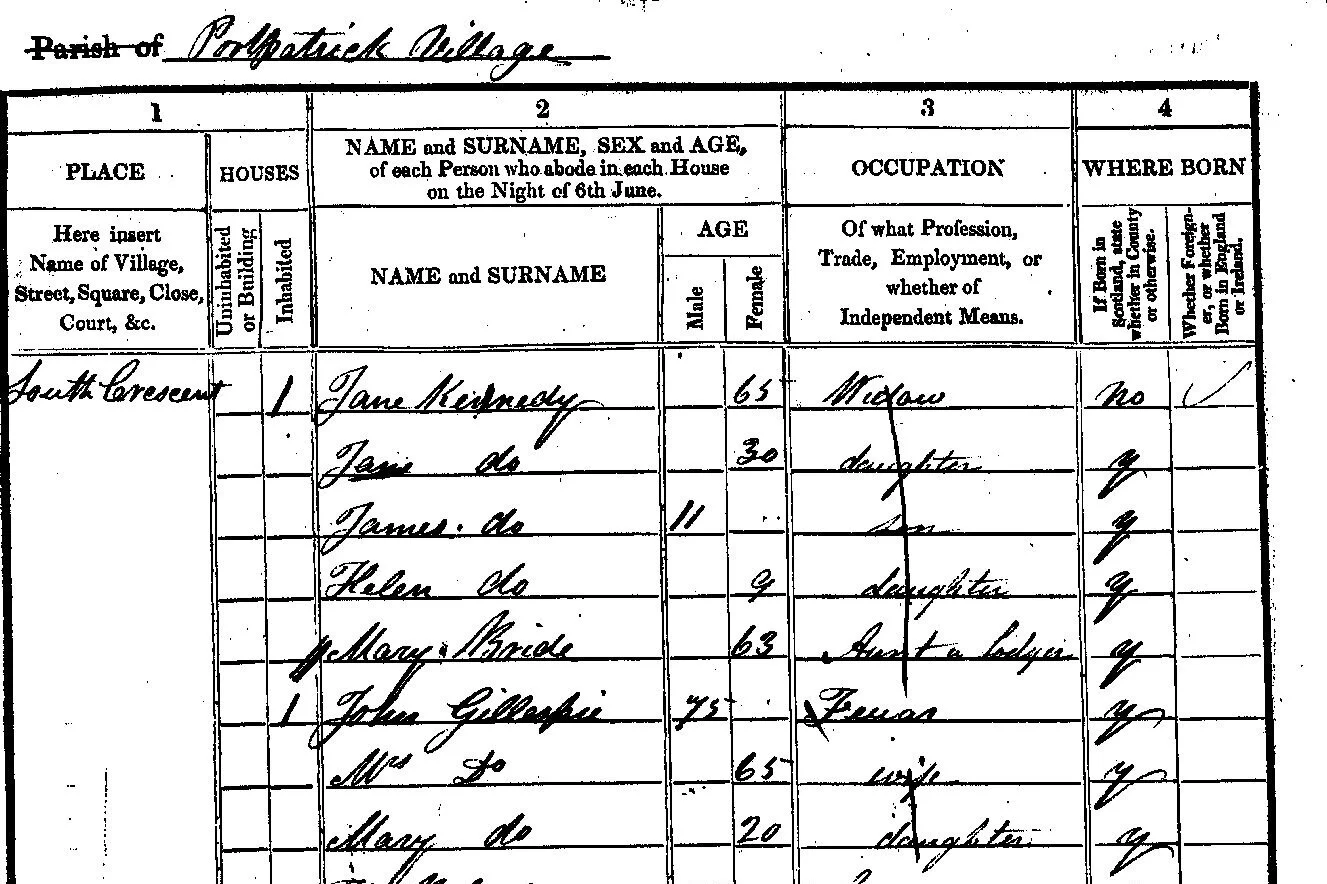 Parish of Portpatrick Village
1 2 3 4
PLACE HOUSES NAME and SURNAME, SEX and AGE, of each Person who abode in each House on the Night of 6th June. OCCUPATION WHERE BORN
Here insert Name of Village, Street, Square, Close, Court, &c. Uninhabited or Building Inhabited NAME and SURNAME AGE Male Female Of what Profession, Trade, Employment, or whether of Independent Means. If Born in Scotland, state whether in County or otherwise. Whether Foreigner, or whether Born in England or Ireland.
South Crescent 1 Jane Kennedy 65 Widow no ✓
Jane do 30 daughter y
James do 11 son y
Helen do 9 daughter y
Mary Bride 63 Aunt a lodger y
1 John Gillespie 75 Feuar y
Mrs Do 65 wife y
Mary do 20 daughter y